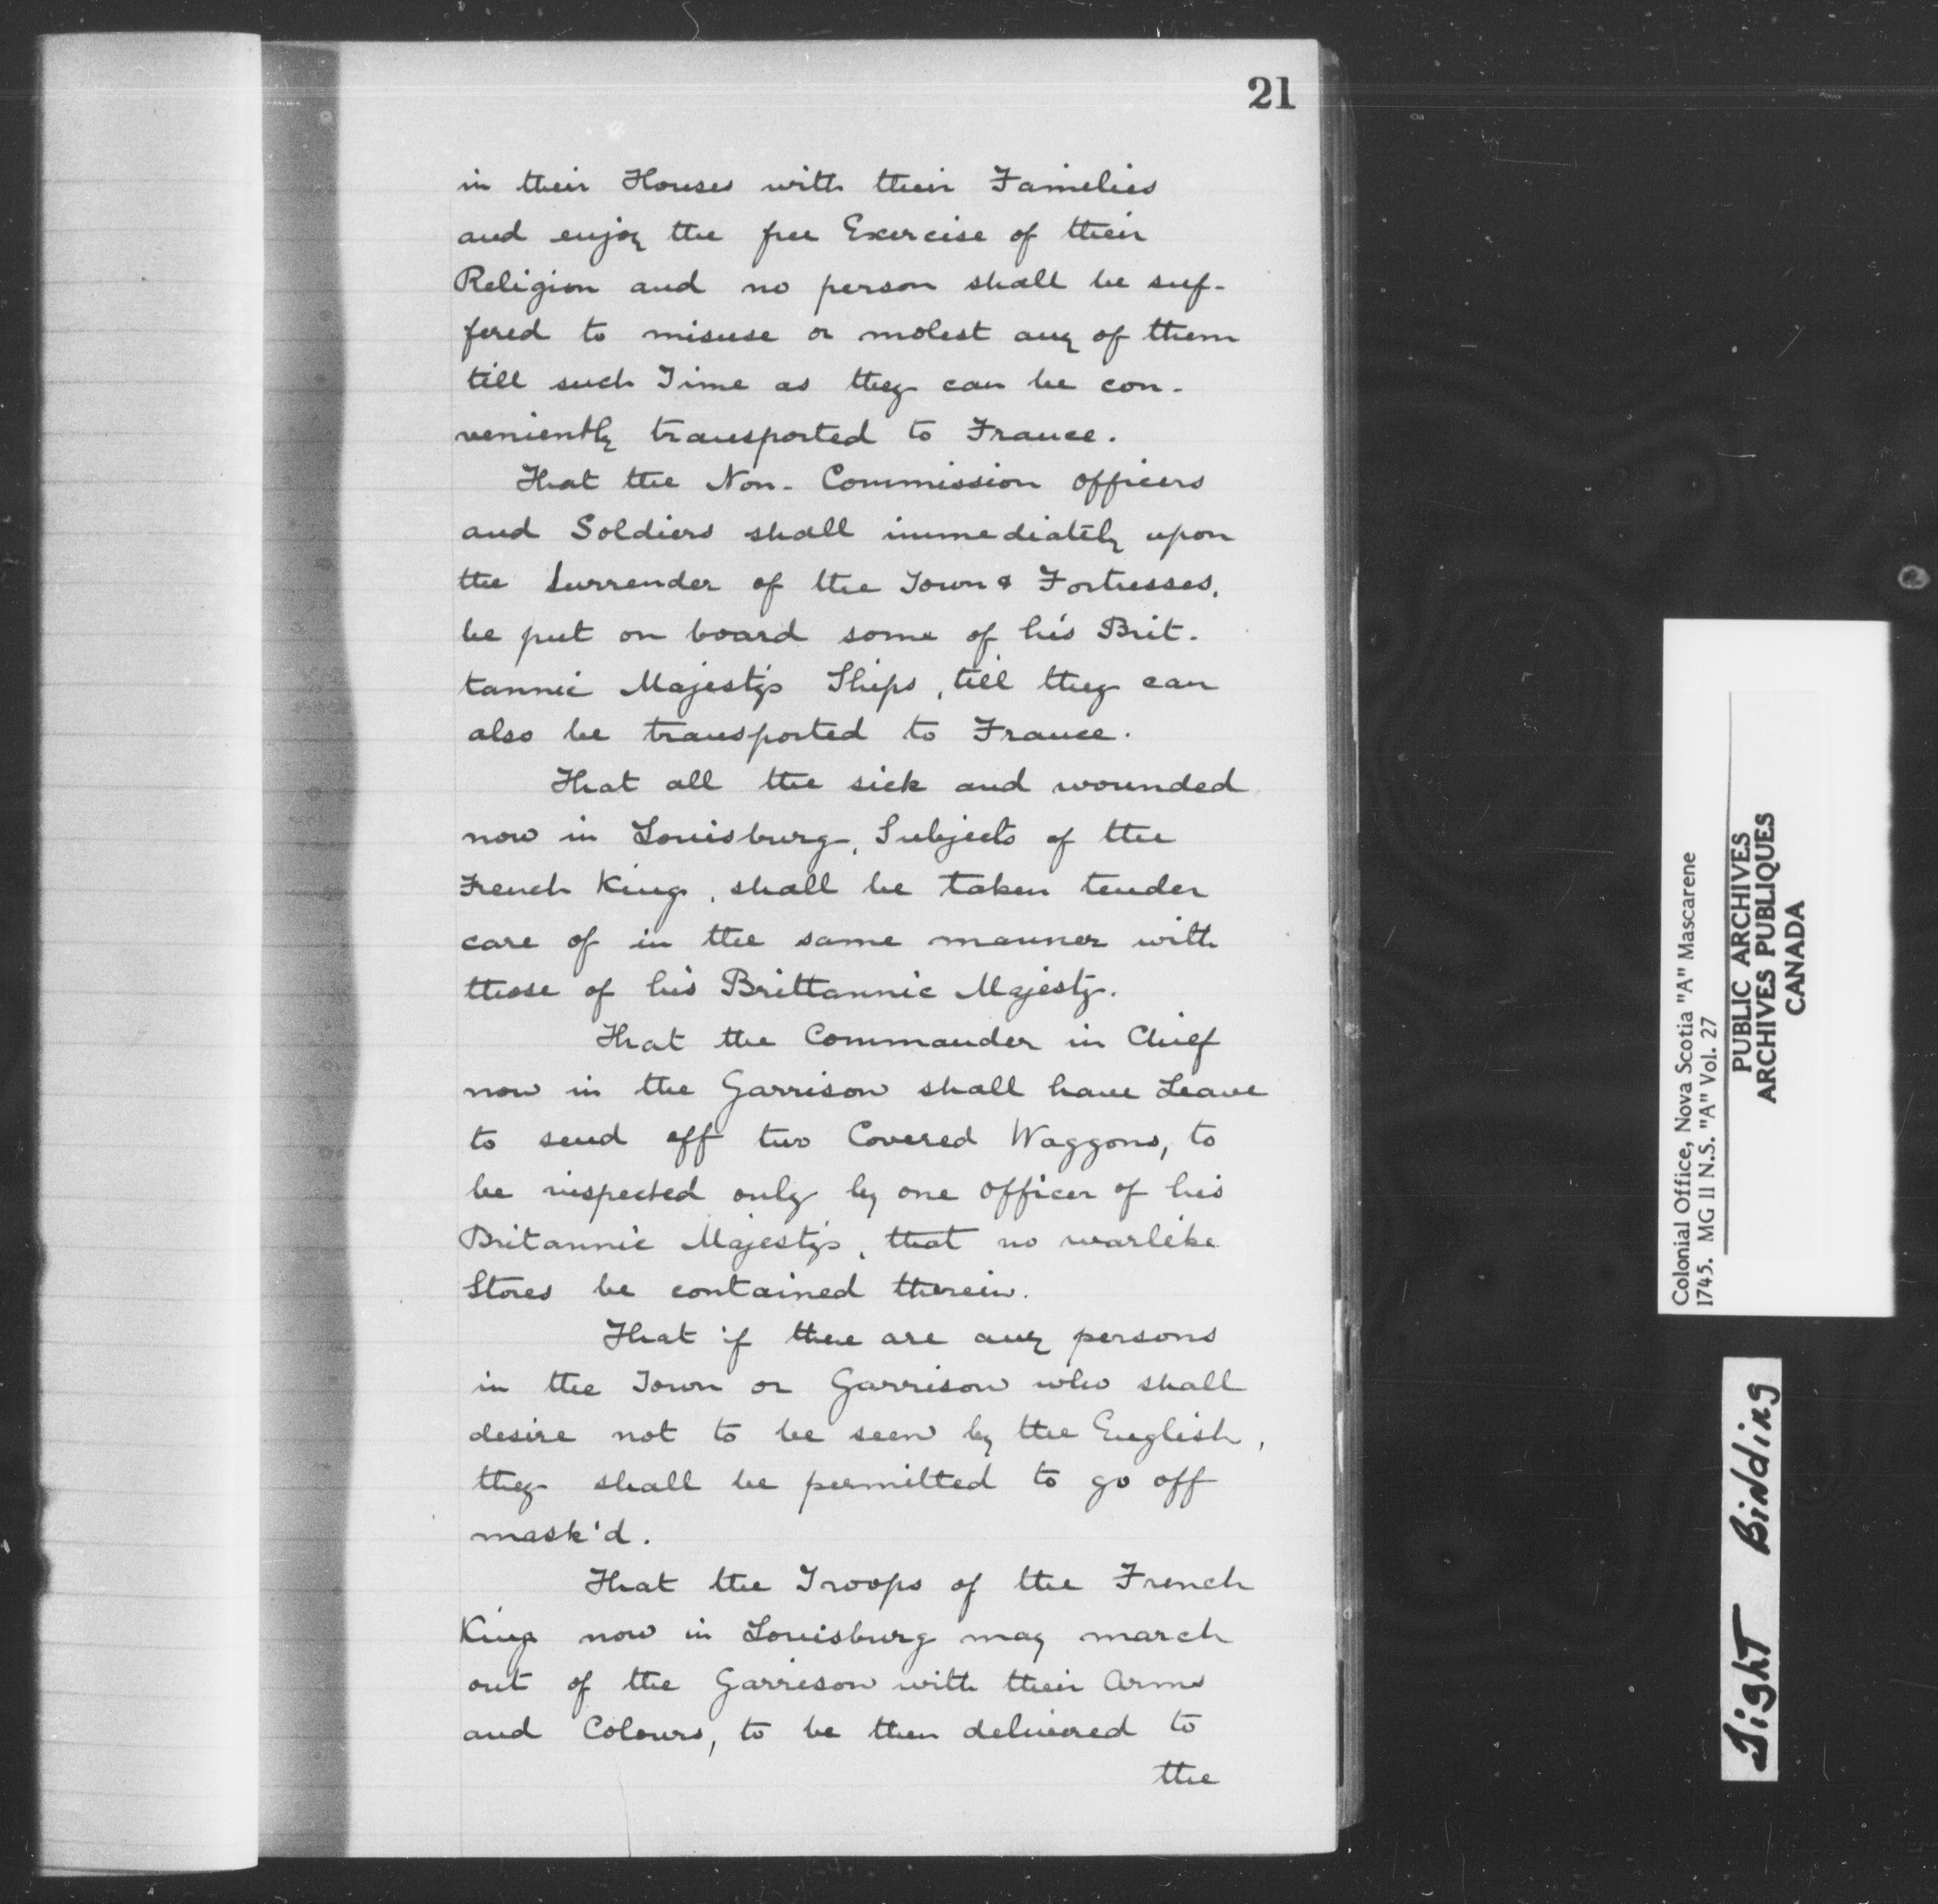 21
in their Houses with their Families
and enjoy the free Exercise of their
Religion and no person shall be suf-
fered to misuse or molest any of them
till such Time as they can be con-
veniently transported to France.
That the Non-Commission officers
and Soldiers shall immediately upon
the Surrender of the Town & Fortresses,
be put on board some of his Brit-
tannic Majesty's Ships, till they can
also be transported to France.
That all the sick and wounded
now in Louisburg, Subjects of the
French King, shall be taken tender
care of in the same manner with
those of his Brittannic Majesty.
That the Commander in Chief
now in the Garrison shall have Leave
to send off two Covered Waggons, to
be inspected only by one officer of his
Britannic Majesty's, that no warlike
Stores be contained therein.
That if there are any persons
in the Town or Garrison who shall
desire not to be seen by the English,
they shall be permitted to go off
mask'd.
That the Troops of the French
King now in Louisburg may march
out of the Garrison with their Arms
and Colours, to be then delivered to
the
Colonial Office, Nova Scotia "A" Mascarene
1745. MG 11 N.S. "A" Vol. 27
PUBLIC ARCHIVES
ARCHIVES PUBLIQUES
CANADA
Tight Binding